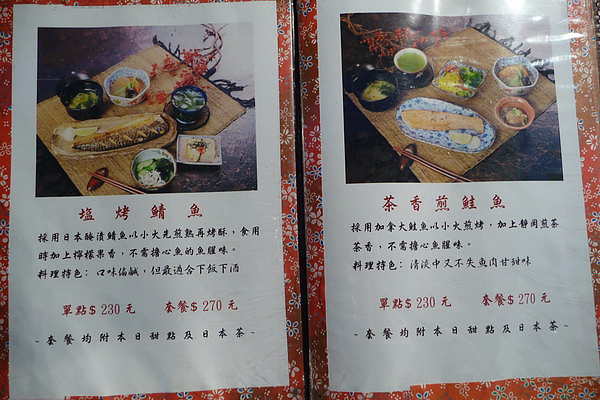 塩烤鯖魚
採用日本醃漬鯖魚以小火先煎熟再烤酥，食用
時加上檸檬果香，不需擔心魚的魚腥味。
料理特色：口味偏鹹，但最適合下飯下酒
單點$230元 套餐$270元
~套餐均附本日甜點及日本茶~
茶香煎鮭魚
採用加拿大鮭魚以小火煎烤，加上靜岡煎茶
茶香，不需擔心魚腥味。
料理特色：清淡中又不失魚肉甘甜味
單點$230元 套餐$270元
~套餐均附本日甜點及日本茶~